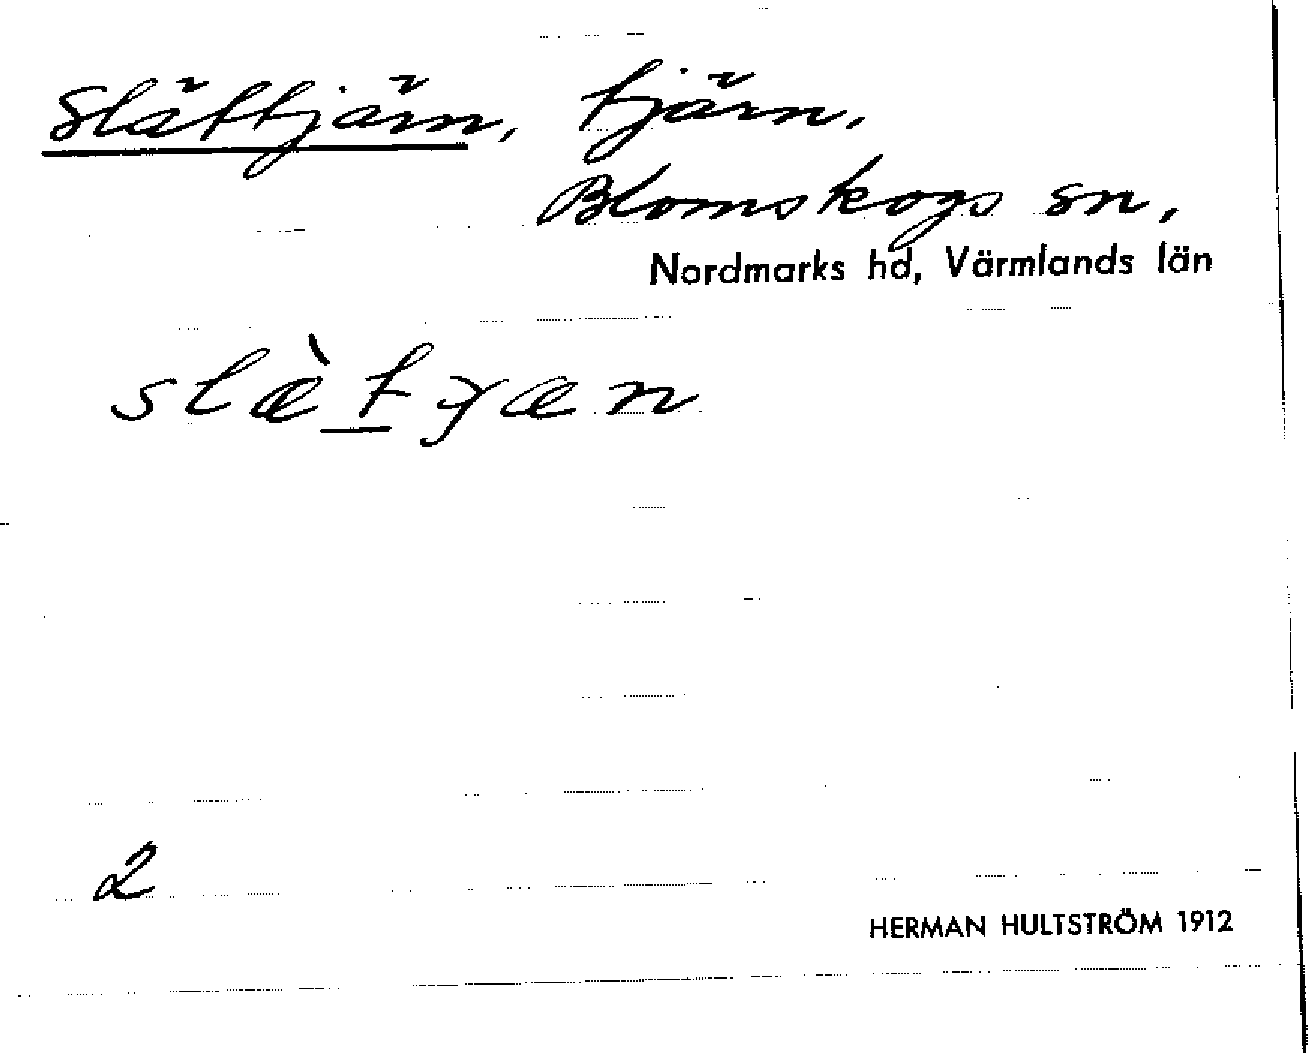 Slättjärn, tjärn,
Blomskogs sn,
Nordmarks hd, Värmlands län
slæ̀t̲ɟæn
2
HERMAN HULTSTRÖM 1912